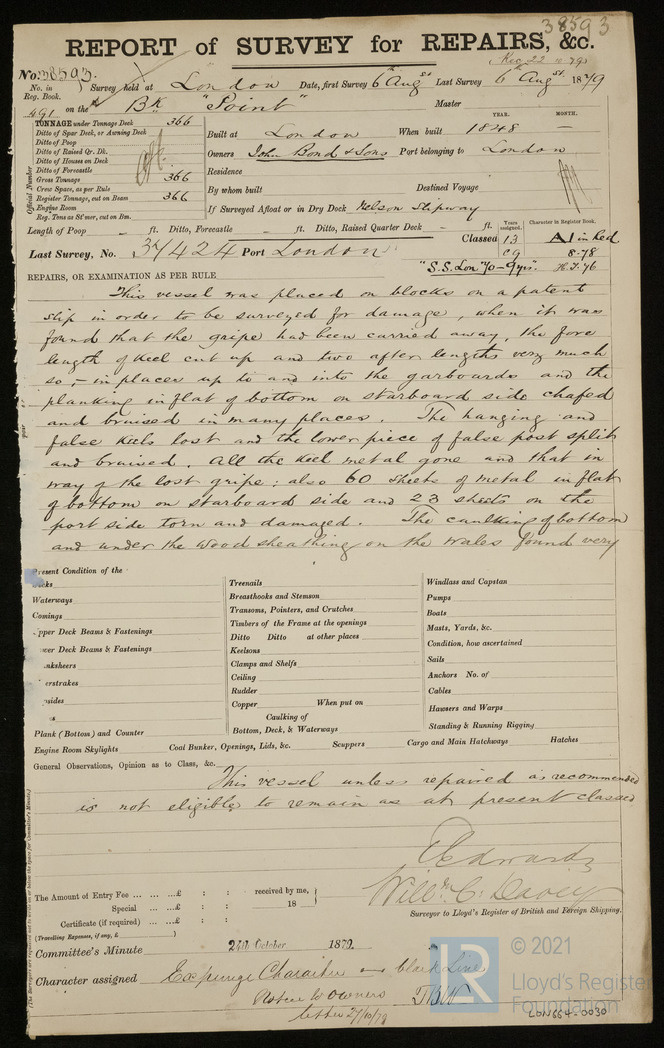 38593
REPORT of SURVEY for REPAIRS, &c.
Rec 22 10 79
No. 38593.
No. in Reg. Book. Survey held at London Date, first Survey 6th Augst Last Survey 6th Augst. 1879
491 on the Bk "Point" Master
TONNAGE under Tonnage Deck 366
Ditto of Spar Deck, or Awning Deck
Ditto of Poop
Ditto of Raised Qr. Dk.
Ditto of Houses on Deck
Ditto of Forecastle
Gross Tonnage 366
Crew Space, as per Rule
Register Tonnage, cut on Beam 366
Engine Room
Reg. Tons as St'mer, cut on Bm.
Official Number
YEAR. MONTH.
Built at London When built 1848 —
Owners John Bond & Sons Port belonging to London
Residence
By whom built Destined Voyage
If Surveyed Afloat or in Dry Dock Nelson Slipway
Length of Poop — ft. Ditto, Forecastle — ft. Ditto, Raised Quarter Deck — ft.
Years assigned. Character in Register Book.
Classed 13 A1 in red
C9 8-78
Last Survey, No. 37424 Port London
"S.S. Lon 70-9yrs". H.T.76
REPAIRS, OR EXAMINATION AS PER RULE
This vessel was placed on blocks on a patent
slip in order to be surveyed for damage, when it was
found that the gripe had been carried away, the fore
length of keel cut up and two after lengths very much
so, – in places up to and into the garboards and the
planking in flat of bottom on starboard side chafed
and bruised in many places. The hanging and
false keels lost and the lower piece of false post split
and bruised. All the keel metal gone and that in
way of the lost gripe; also 60 sheets of metal in flat
of bottom on starboard side and 23 sheets on the
port side torn and damaged. The caulking of bottom
and under the wood sheathing on the wales found very
Present Condition of the
Waterways
Comings
Upper Deck Beams & Fastenings
Lower Deck Beams & Fastenings
Plank (Bottom) and Counter
Treenails
Breasthooks and Stemson
Transoms, Pointers, and Crutches
Timbers of the Frame at the openings
Ditto Ditto at other places
Keelsons
Clamps and Shelfs
Ceiling
Rudder
Copper When put on
Caulking of
Bottom, Deck, & Waterways
Windlass and Capstan
Pumps
Boats
Masts, Yards, &c.
Condition, how ascertained
Sails
Anchors No. of
Cables
Hawsers and Warps
Standing & Running Rigging
Engine Room Skylights Coal Bunker, Openings, Lids, &c. Scuppers Cargo and Main Hatchways Hatches
General Observations, Opinion as to Class, &c.
This vessel unless repaired as recommended
is not eligible to remain as at present classed
Edwards
Willm C. Davey
Surveyor to Lloyd's Register of British and Foreign Shipping.
The Amount of Entry Fee ... ... ...£ : : received by me,
Special ... ...£ : : 18
Certificate (if required) ... ...£ : :
(Travelling Expenses, if any, £ )
Committee's Minute 24th October 1879.
Character assigned Expunge Character and black Line
Notice to Owners TBW
letter 27/10/79
LR
© 2021
Lloyd's Register
Foundation
LON664-0030